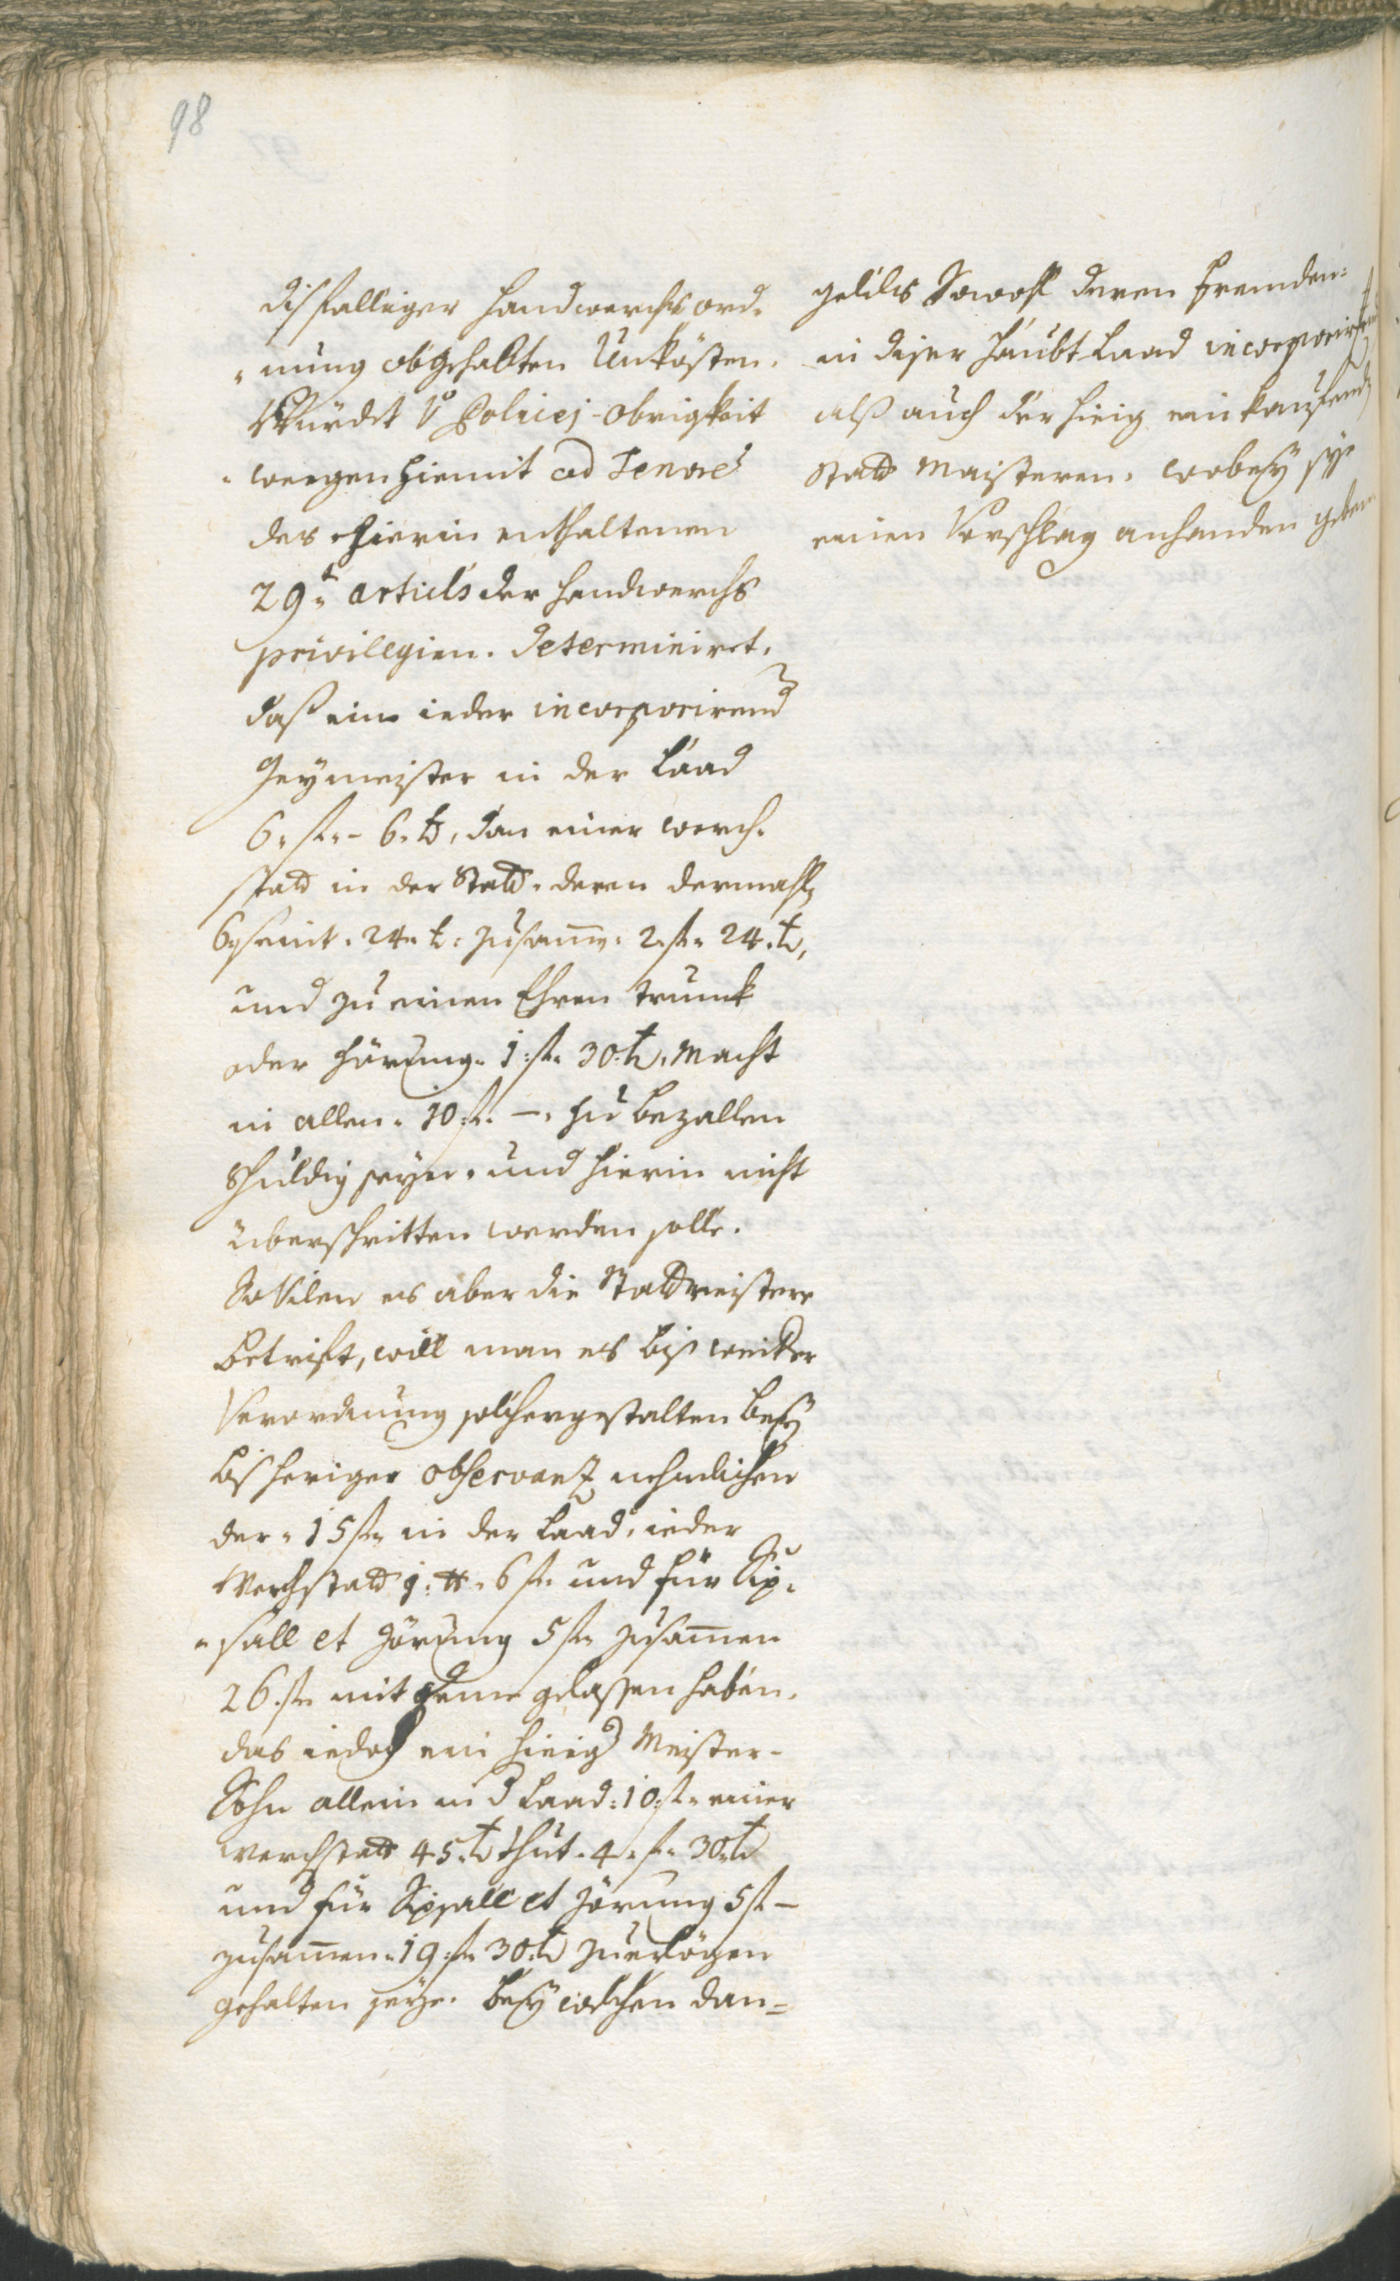 98
disfalliger Handwerchs ord-
nung obgehalten Unkösten.
Würdet Policej-Obrigkeit
weegen hiemit ad Tenore
des hierin enthaltenen
29. articls der Handwerchs
privilegien. determiniret.
daß ein ieder incorporirend
Geymeister in der Laad
6. f. 6. x, dan einer werch-
statt in der Statt. deren dermahls
6 seint. 24. x: zusamm: 2. f. 24. x,
und zu einen Ehren trunk
oder Zörung. 1: f. 30. x. Macht
in allen. 10. f. –. zu bezallen
schuldig seye. und hierin nicht
überschritten werden solle.
Sovilen es aber die Stattmeistere
betrift, will man es biß weither
Verordnung solchergestalten bey
bisheriger observanz nehmlichen
der. 15 f. in der Laad. ieder
Werchstatt 1. f. 6 f. und für
fall et Zörung 5 f. zusammen
26. f. mit deme gelassen haben.
das iedoch ein hieig Meister-
Sohn allein in d Laad: 10. f. einer
werchstatt 45. x thut. 4. f. 30. x
und für et Zörung 5 f –
zusammen. 19. f. 30. x zu erlögen
gehalten seye. bey welchen dan=
geldts Sowohl deren fremden:
in diser Haubt Laad
alß auch der hieig einkaufend
Statt Maisteren. wobey sye
einen Vorschlag anhanden geben